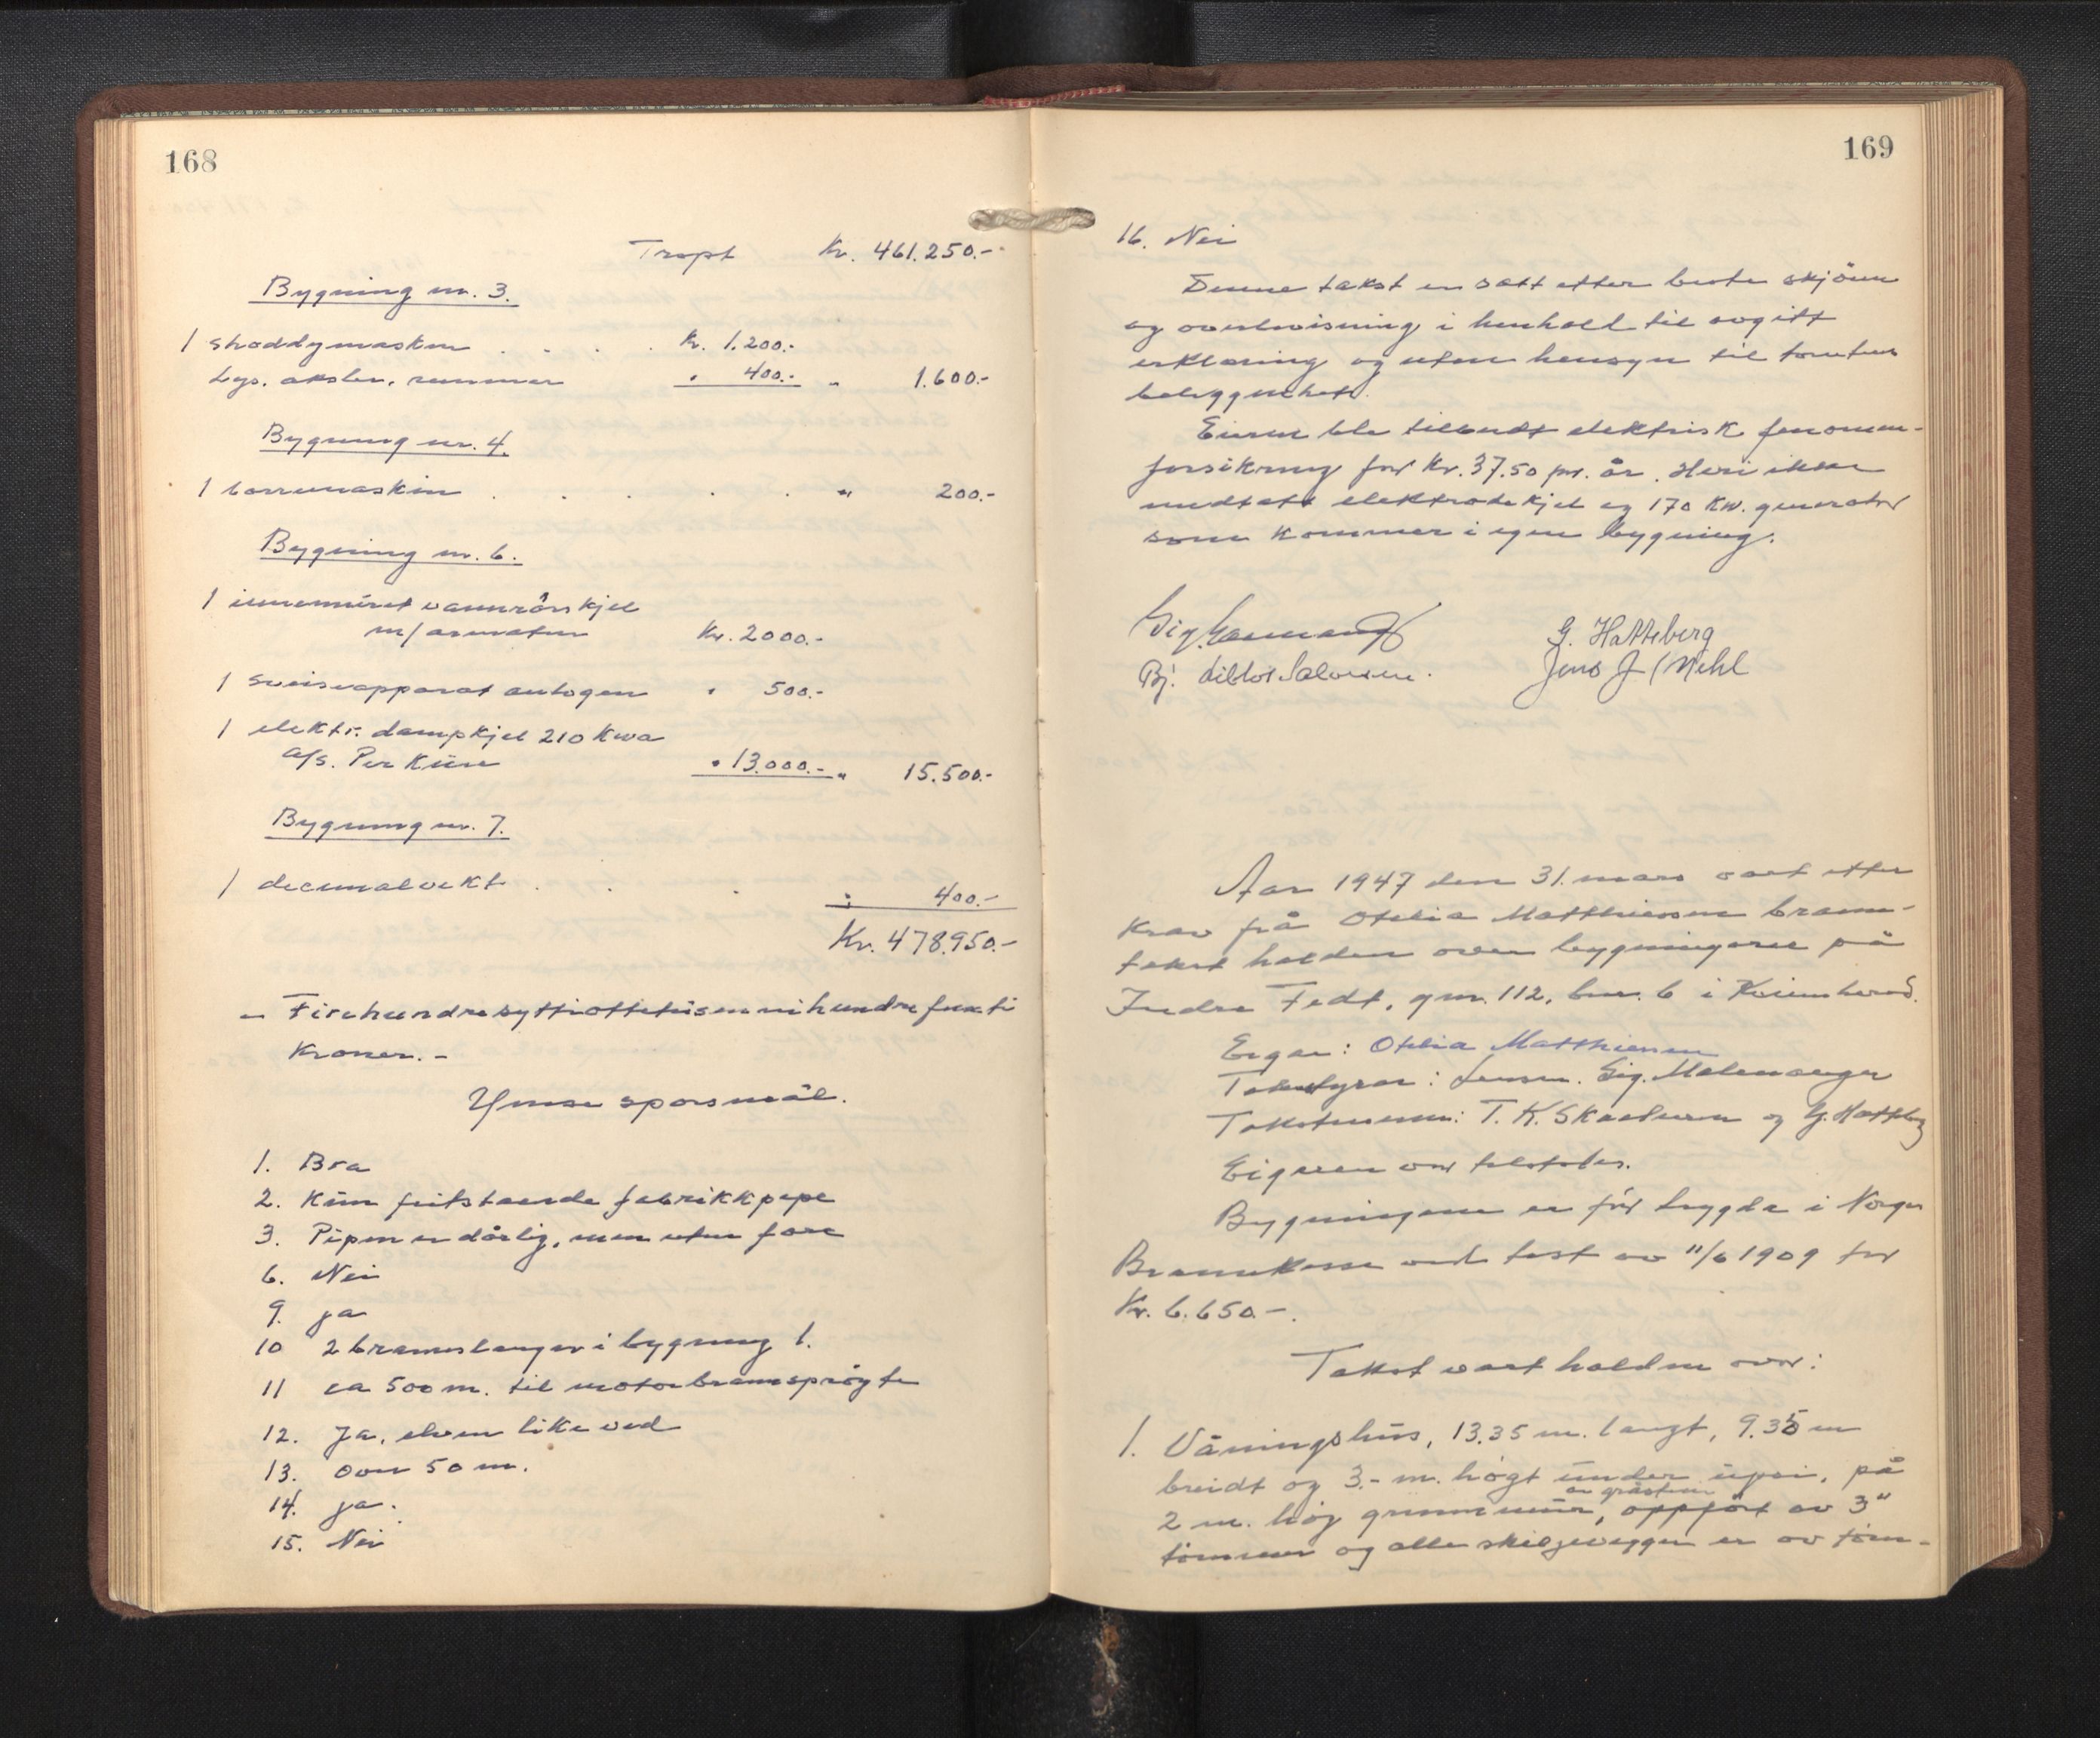 168
Trspt Kr. 461.250.-
Bygning nr. 3.
1 shoddymaskin . . . . Kr. 1.200.-
Lgs. aksler, remmer " 400.- " 1.600.-
Bygning nr. 4.
1 borremaskin . . . . . " 200.-
Bygning nr. 6.
1 innemuret vannrörskjel
m/ armatur Kr. 2000.-
1 sveiseapparat autogen " 500.-
1 elektr. dampkjel 210 Kwa
A/s. Per Küre " 13.000.- " 15.500.-
Bygning nr. 7.
1 decimalvekt . . . " 400.-
Kr. 478.950.-
- Firehundresyttiottetusennihundrefemti
Kroner. -
Ymse spørsmål.
1. Bra
2. Kun frittstaende fabrikkpipe
3. Pipen er dårlig, men uten fare
6. Nei
9. ja
10 2 brannslanger i bygning 1.
11 ca 500 m. til motorbrannspröyte
12. Ja, elven like ved
13. over 50 m.
14. ja.
15. Nei
169
16. Nei
Denne takst er satt etter beste skjönn
og overbevisning i henhold til avgitt
erklæring og uten hensyn til tomtens
beliggenhet.
Eieren ble tilbudt elektrisk fenomen-
forsikring for Kr. 37.50 pr. år. Heri ikke
medtatt elektrodekjel og 170 Kw. generator
som kommer i egen bygning.
G. Hatteberg
Bj. Salomonsen. Jens J. Mehl
Aar 1947 den 31. mars vart etter
Krav frå Otelia Matthiessen brann-
takst halden over bygningane på
Indre Fedt, gnr. 112, bnr. 6 i Kvinnherad.
Eigar: Otelia Matthiessen
Takstyrar: Lensm. Sig. Malmanger
Takstmenn: T. K. Skaaluren og G. Hatteberg
Eigaren var tilstades.
Bygningane er för trygda i Norges
Brannkasse ved takst av 11/6 1909 for
Kr. 6.650.-.
Takst vart halden over:
1. Våningshus, 13.35 m. langt, 9.35 m
breidt og 3.- m. högt under upsi, på
2 m. hög grunnmur av gråstein, oppfört av 3"
tömmer og alle skiljevegger er av töm-